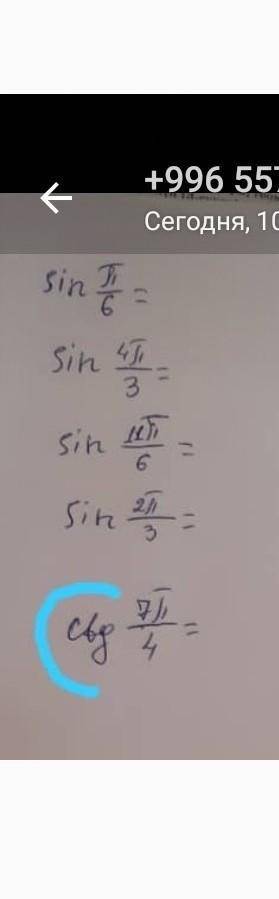 +996 557
Сегодня, 10
sin π/6 =
sin 4π/3 =
sin 11π/6 =
sin 2π/3 =
ctg 7π/4 =